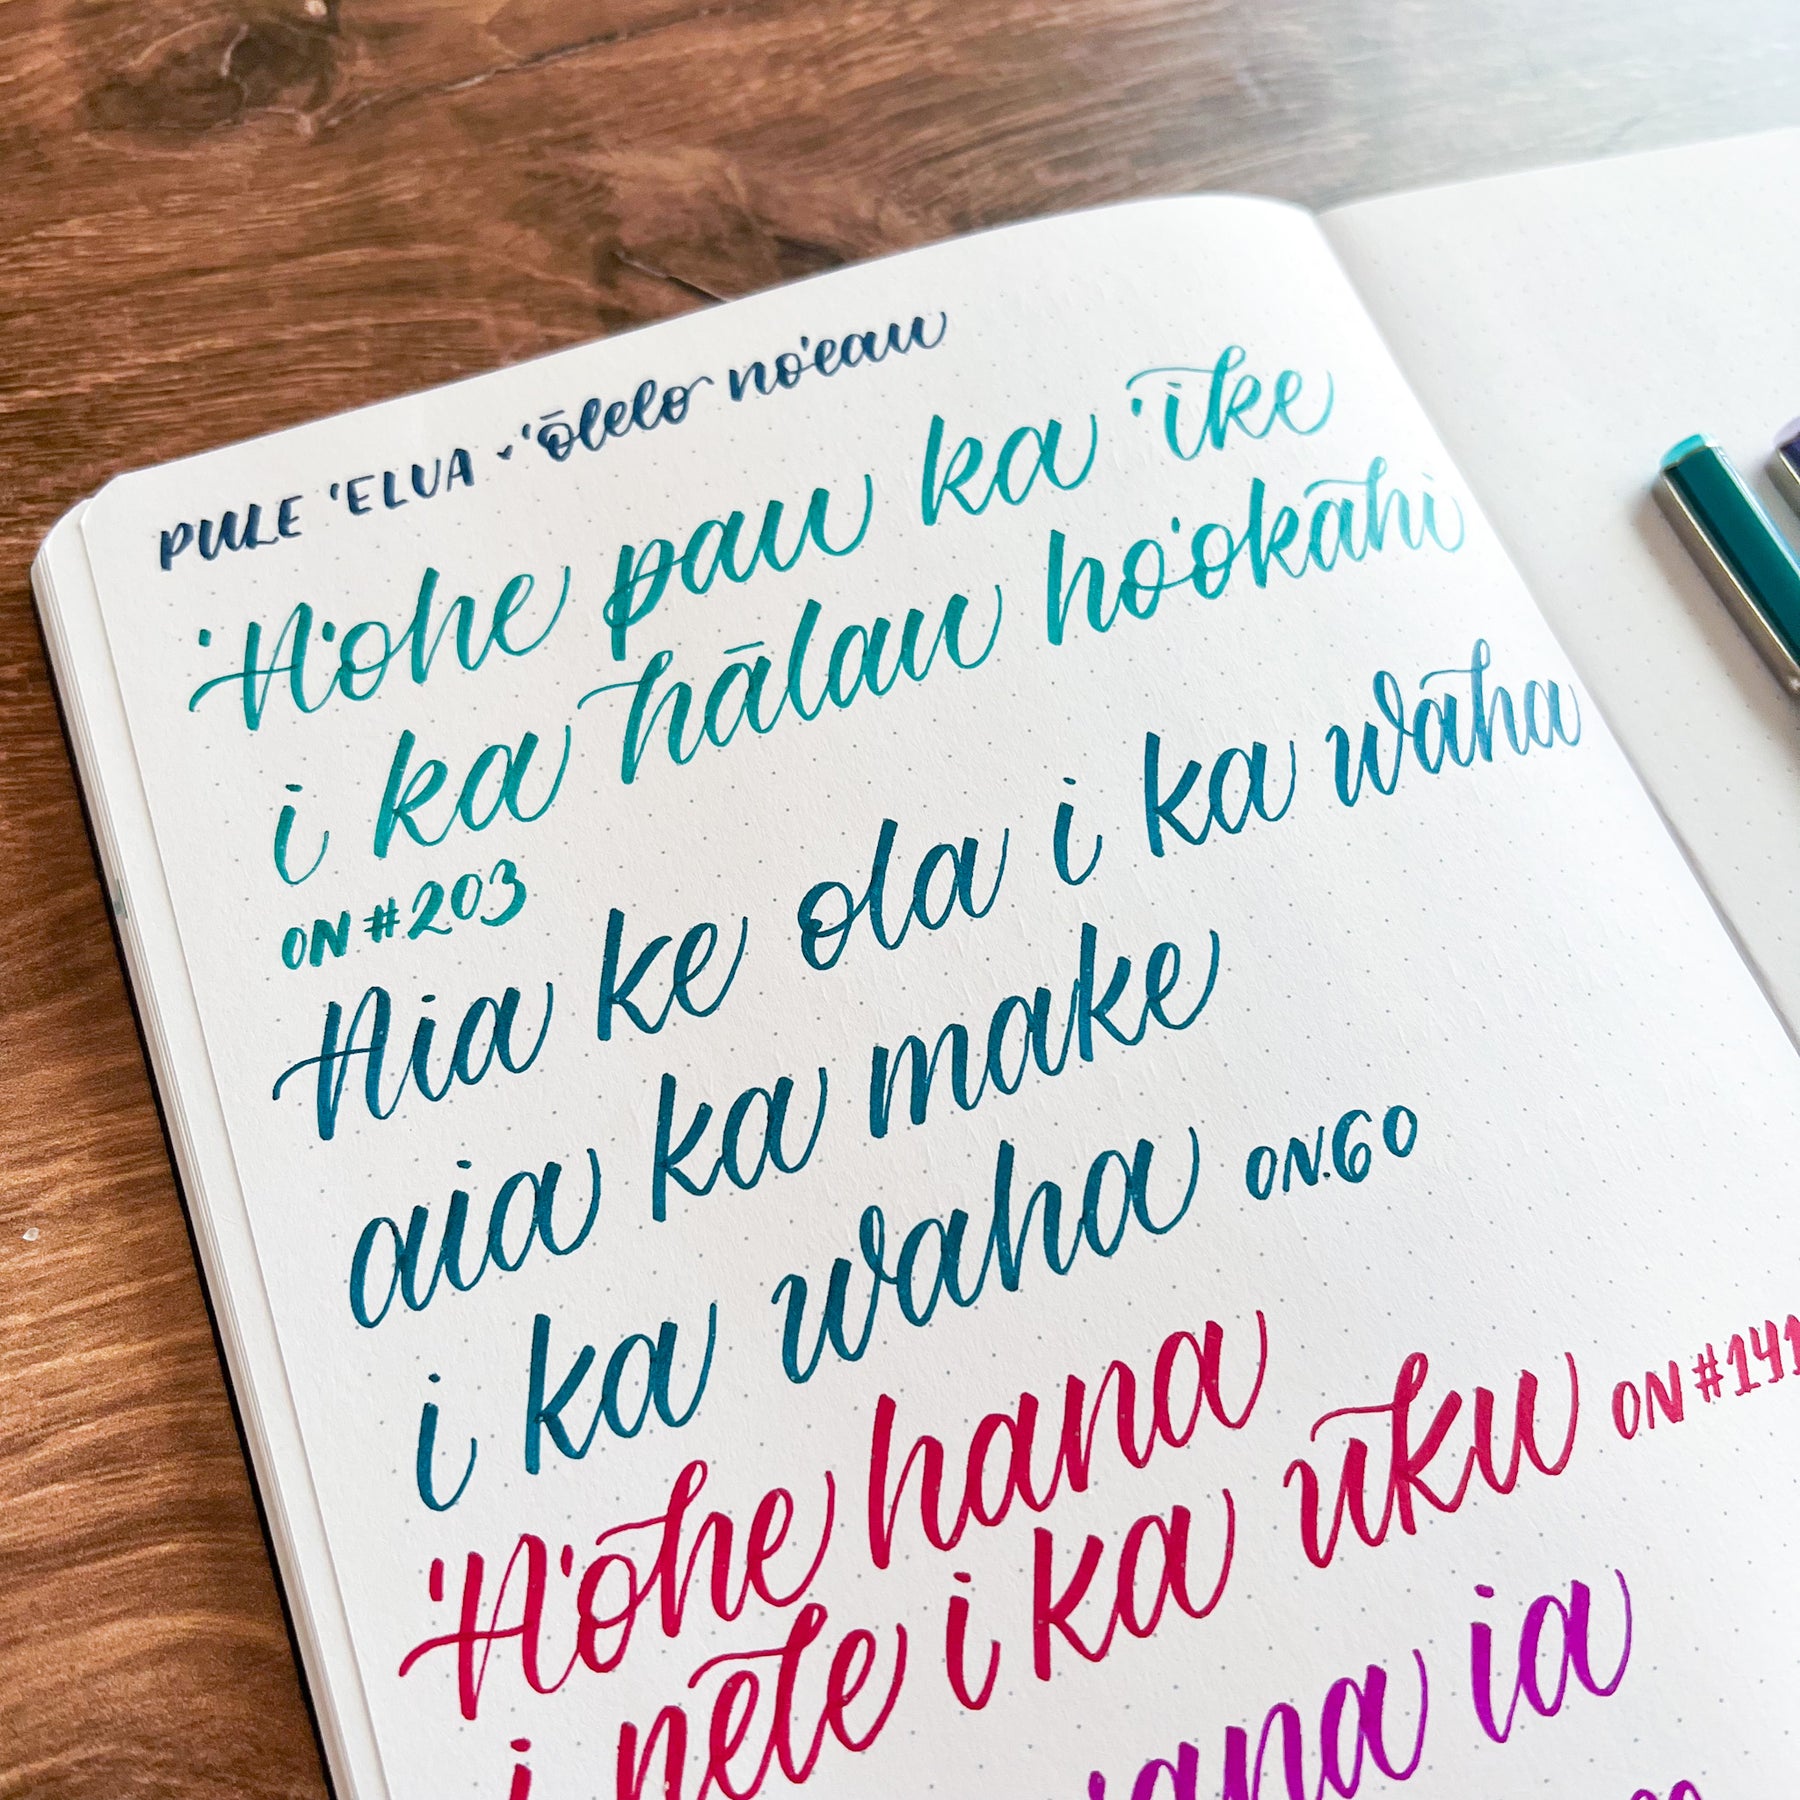 PULE 'ELUA • 'ōlelo no'eau
'A'ohe pau ka 'ike
i ka hālau ho'okahi
ON #203
Aia ke ola i ka waha
aia ka make
i ka waha ON.60
'A'ohe hana
i nele i ka uku ON #141
ia